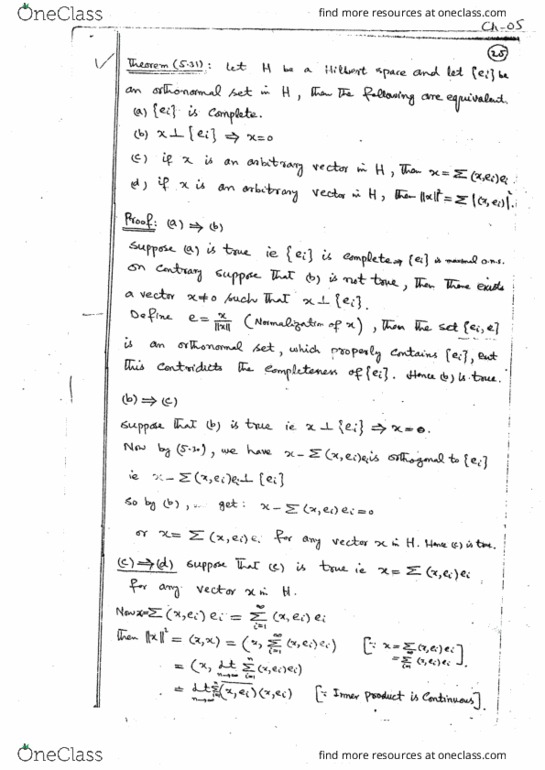 OneClass
find more resources at oneclass.com
Ch-05
25
Theorem (5.31): Let H be a Hilbert space and let {ei} be
an orthonormal set in H, then the following are equivalent.
(a) {ei} is complete.
(b) x⊥{ei} ⇒ x=0
(c) if x is an arbitrary vector in H, then x=Σ(x,ei)ei.
(d) if x is an arbitrary vector in H, then ||x||²=Σ|(x,ei)|².
Proof: (a) ⇒ (b)
Suppose (a) is true ie {ei} is complete ⇒ {ei} is maximal o.n.s.
on contrary suppose that (b) is not true, then there exists
a vector x≠0 such that x⊥{ei}.
Define e = x/||x|| (Normalization of x), then the set {ei,e}
is an orthonormal set, which properly contains {ei}, but
this contridicts the completeness of {ei}. Hence (b) is true.
(b) ⇒ (c)
suppose that (b) is true ie x⊥{ei} ⇒ x=0.
Now by (5.30), we have x-Σ(x,ei)ei is orthogonal to {ei}
ie x-Σ(x,ei)ei⊥{ei}
So by (b), get: x-Σ(x,ei)ei=0
or x=Σ(x,ei)ei for any vector x in H. Hence (c) is true.
(c)⇒(d) suppose that (c) is true ie x=Σ(x,ei)ei
for any vector x in H.
Now x=Σ(x,ei)ei = Σ_{i=1}^{∞}(x,ei)ei
Then ||x||² = (x,x) = (x, Σ_{i=1}^{∞}(x,ei)ei) [∵ x=Σ(x,ei)ei
=Σ_{i=1}^{∞}(x,ei)ei].
= (x, Lt_{n→∞} Σ_{i=1}^{n}(x,ei)ei)
= Lt_{n→∞} Σ_{i=1}^{n} \overline{(x,ei)}(x,ei) [∵ Inner product is continuous].
OneClass
find more resources at oneclass.com